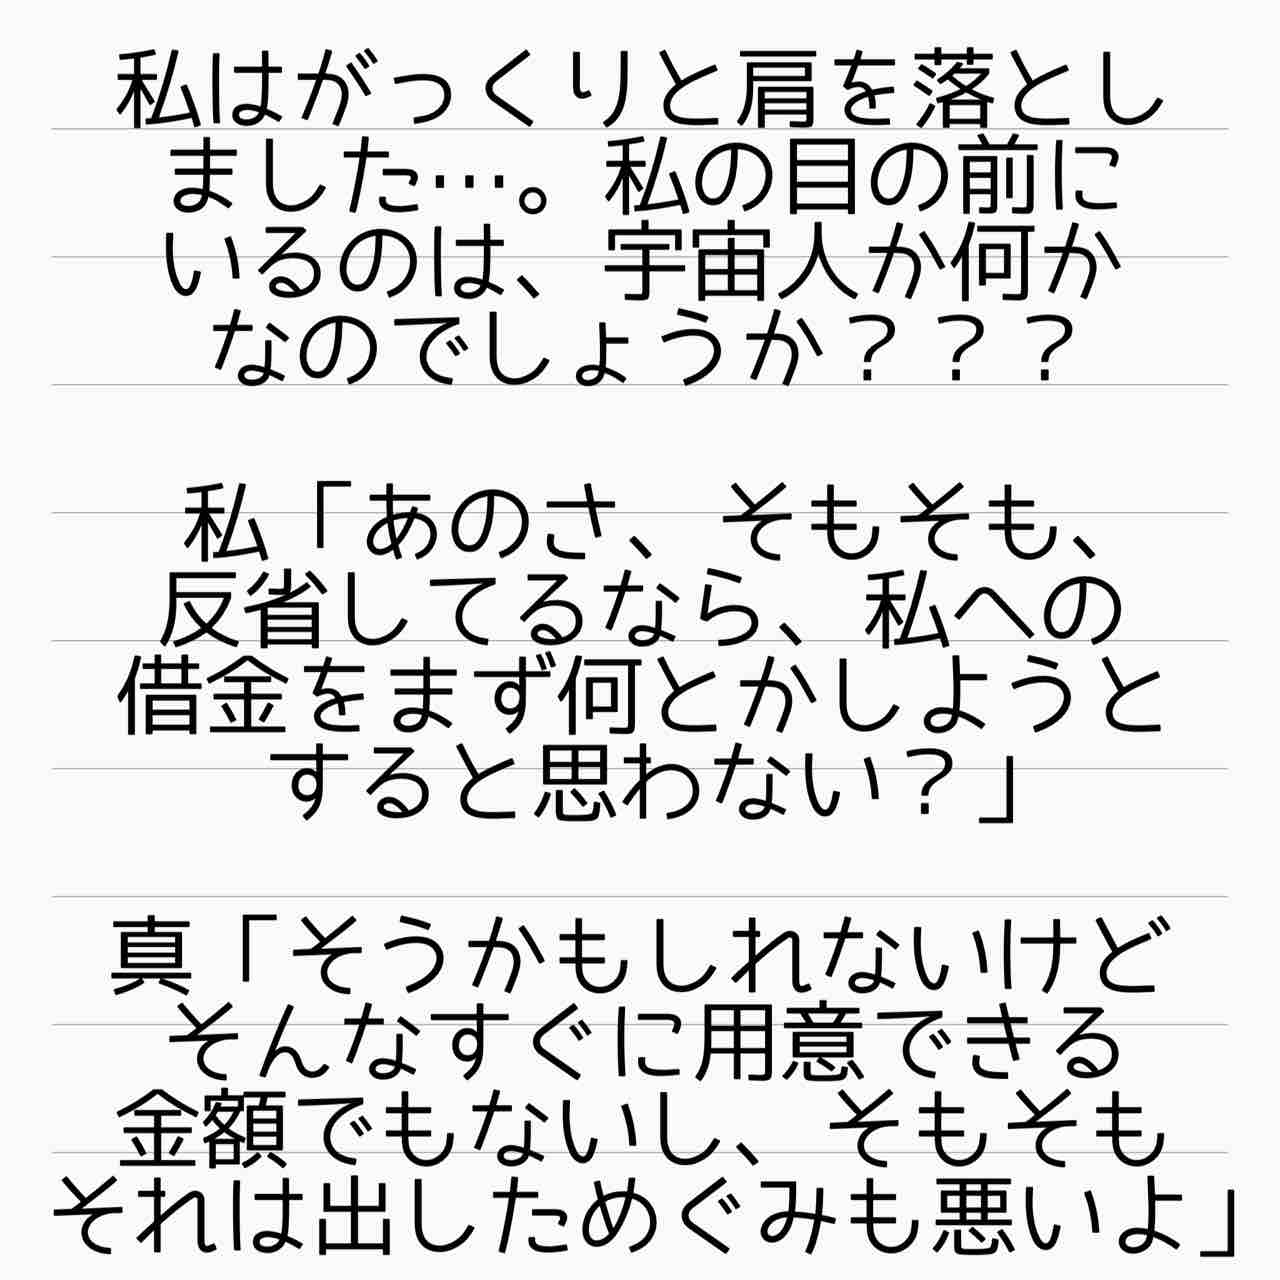 私はがっくりと肩を落とし
ました…。私の目の前に
いるのは、宇宙人か何か
なのでしょうか？？？
私「あのさ、そもそも、
反省してるなら、私への
借金をまず何とかしようと
すると思わない？」
真「そうかもしれないけど
そんなすぐに用意できる
金額でもないし、そもそも
それは出しためぐみも悪いよ」